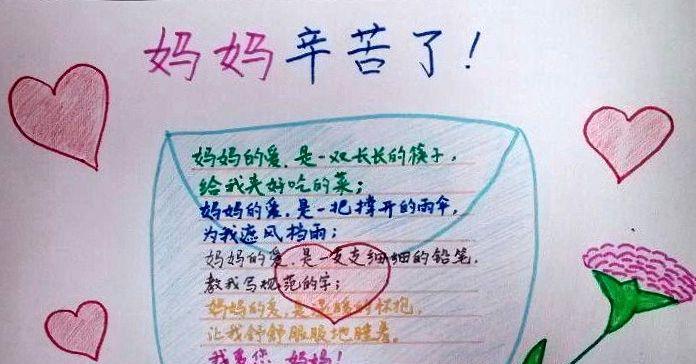 妈妈辛苦了！
妈妈的爱，是一双长长的筷子，
给我夹好吃的菜；
妈妈的爱，是一把撑开的雨伞，
为我遮风挡雨；
妈妈的爱，是一支支细细的铅笔，
教我写规范的字；
妈妈的爱，是温暖的怀抱，
让我舒舒服服地睡着。
我爱您，妈妈！